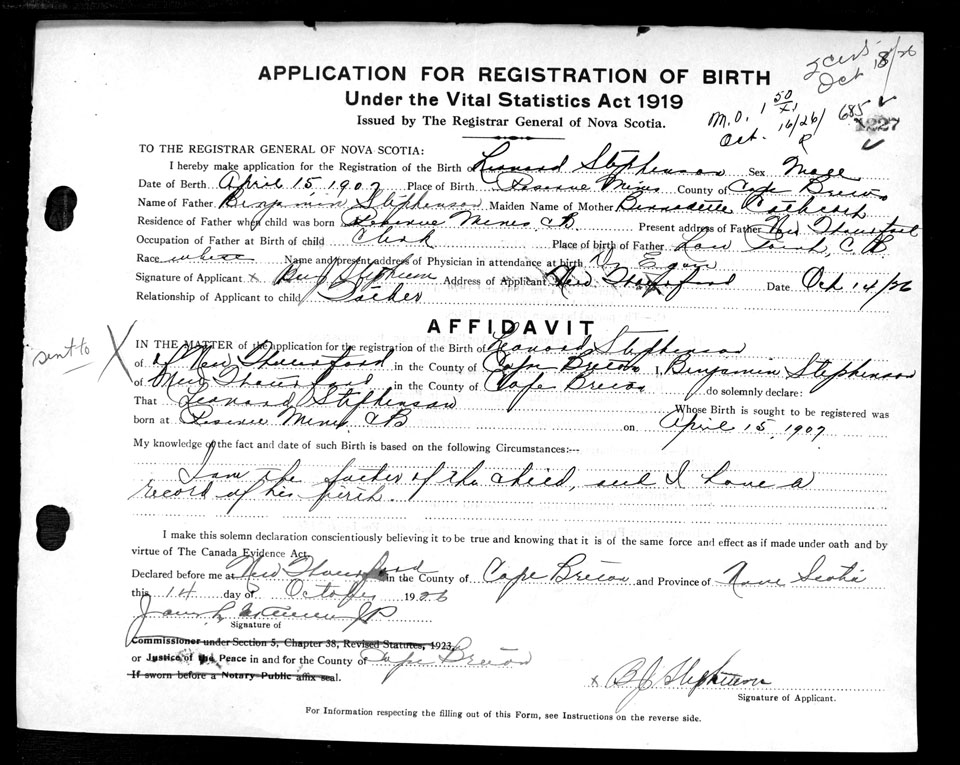 2 certs
Oct 18/26
APPLICATION FOR REGISTRATION OF BIRTH
Under the Vital Statistics Act 1919
Issued by The Registrar General of Nova Scotia.
M.O. 1 50/xx
Oct. 16/26/
R
685
1227
TO THE REGISTRAR GENERAL OF NOVA SCOTIA:
I hereby make application for the Registration of the Birth of Leonard Stephenson Sex Male
Date of Berth April 15, 1907 Place of Birth Reserve Mines County of Cape Breton
Name of Father Benjamin Stephenson Maiden Name of Mother Bernadette
Residence of Father when child was born Reserve Mines CB. Present address of Father New
Occupation of Father at Birth of child Clerk Place of birth of Father C.B.
Race white Name and present address of Physician in attendance at birth Dr Egan
Signature of Applicant x Address of Applicant New Date Oct 14/26
Relationship of Applicant to child Father
AFFIDAVIT
sent to X
IN THE MATTER of the application for the registration of the Birth of Leonard Stephenson
of of New in the County of Cape Breton I, Benjamin Stephenson
of New in the County of Cape Breton do solemnly declare:
That Leonard Stephenson Whose Birth is sought to be registered was
born at Reserve Mines CB on April 15, 1907
My knowledge of the fact and date of such Birth is based on the following Circumstances:--
I am the father of the child, and I have a
record of his birth.
I make this solemn declaration conscientiously believing it to be true and knowing that it is of the same force and effect as if made under oath and by
virtue of The Canada Evidence Act.
Declared before me at New in the County of Cape Breton and Province of Nova Scotia
this 14 day of October 1926
JP
Signature of
Commissioner under Section 5, Chapter 38, Revised Statutes, 1923,
or Justice of the Peace in and for the County of Cape Breton
If sworn before a Notary Public affix seal.
x B J Stephenson
Signature of Applicant.
For Information respecting the filling out of this Form, see Instructions on the reverse side.